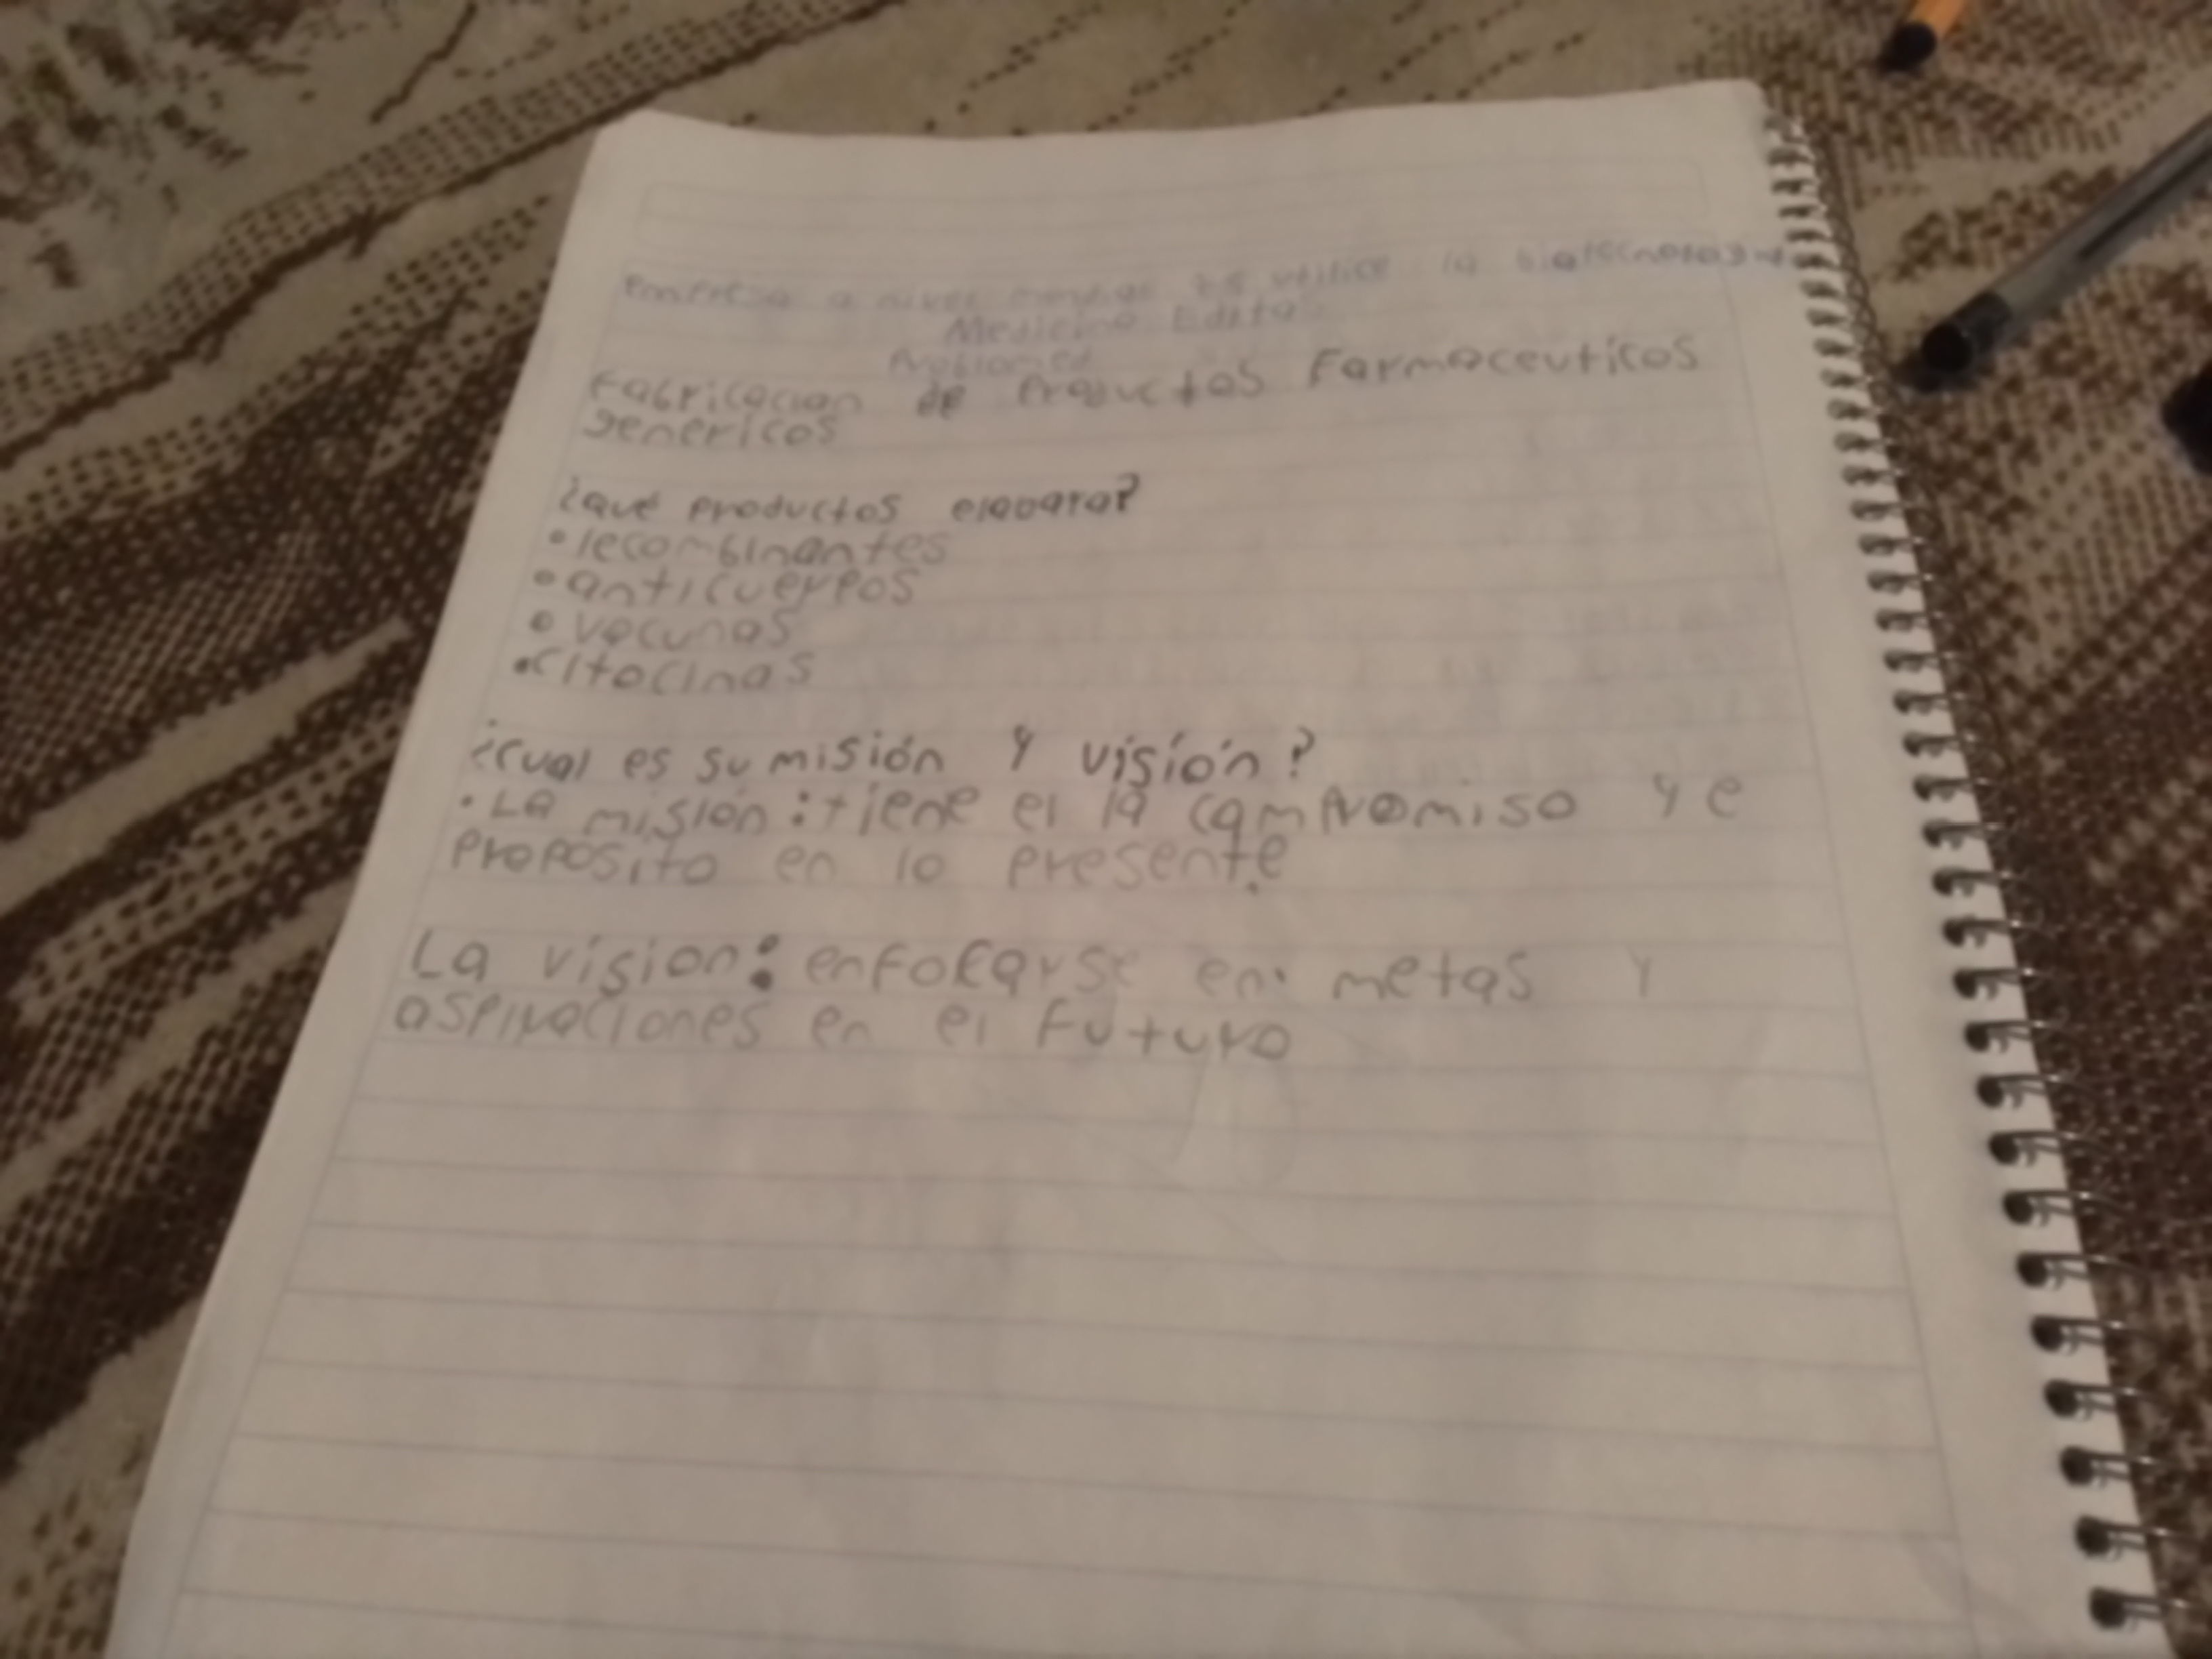 Empresa a nivel que utilice la biotecnologia
Medicina
Probiomed
Fabricacion de Productos Farmaceuticos
genericos
¿qué productos elabora?
• recombinantes
• anticuerpos
• vacunas
• citocinas
¿cual es su misión y visión?
• La misión: tiene el la compromiso y e
proposito en lo presente.
La vision: enfocarse en metas y
aspiraciones en el Futuro